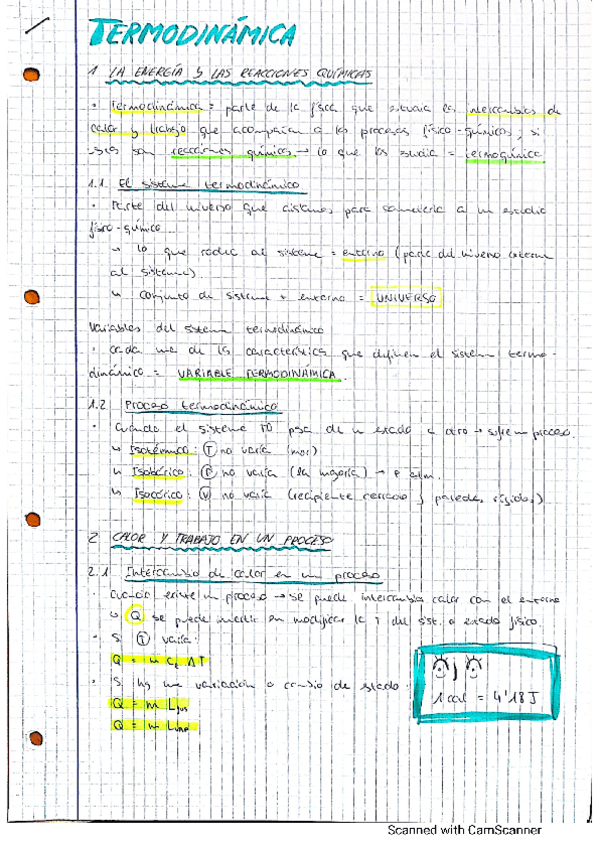 TERMODINÁMICA
1. LA ENERGÍA Y LAS REACCIONES QUÍMICAS
· Termodinámica = parte de la física que estudia los intercambios de
calor y trabajo que acompañan a los procesos físico-químicos, si
esos son reacciones químicas → lo que los estudia = termoquímica
1.1. El sistema termodinámico
· Parte del universo que aislamos para someterla a un estudio
físico-químico
↳ lo que rodea al sistema = entorno (parte del universo externa
al sistema)
↳ conjunto de sistema + entorno = UNIVERSO
Variables del sistema termodinámico
· cada una de las características que definen el sistema termo-
dinámico = VARIABLE TERMODINÁMICA.
1.2 Proceso termodinámico
· Cuando el sistema TD pasa de un estado a otro → sufre un proceso.
↳ Isotérmico: T no varía (mar)
↳ Isobárico: P no varía (la mayoría) → P atm.
↳ Isocórico: V no varía (recipiente cerrado y paredes rígidas)
2 CALOR Y TRABAJO EN UN PROCESO
2.1 Intercambio de calor en un proceso
· Cuando existe un proceso → se puede intercambiar calor con el entorno
↳ Q se puede invertir en modificar la T del sist. o estado físico.
· Si T varía:
Q = m Ce ΔT
· Si hay una variación o cambio de estado:
Q = m Lfus
Q = m Lvap
1 cal = 4'18 J
Scanned with CamScanner